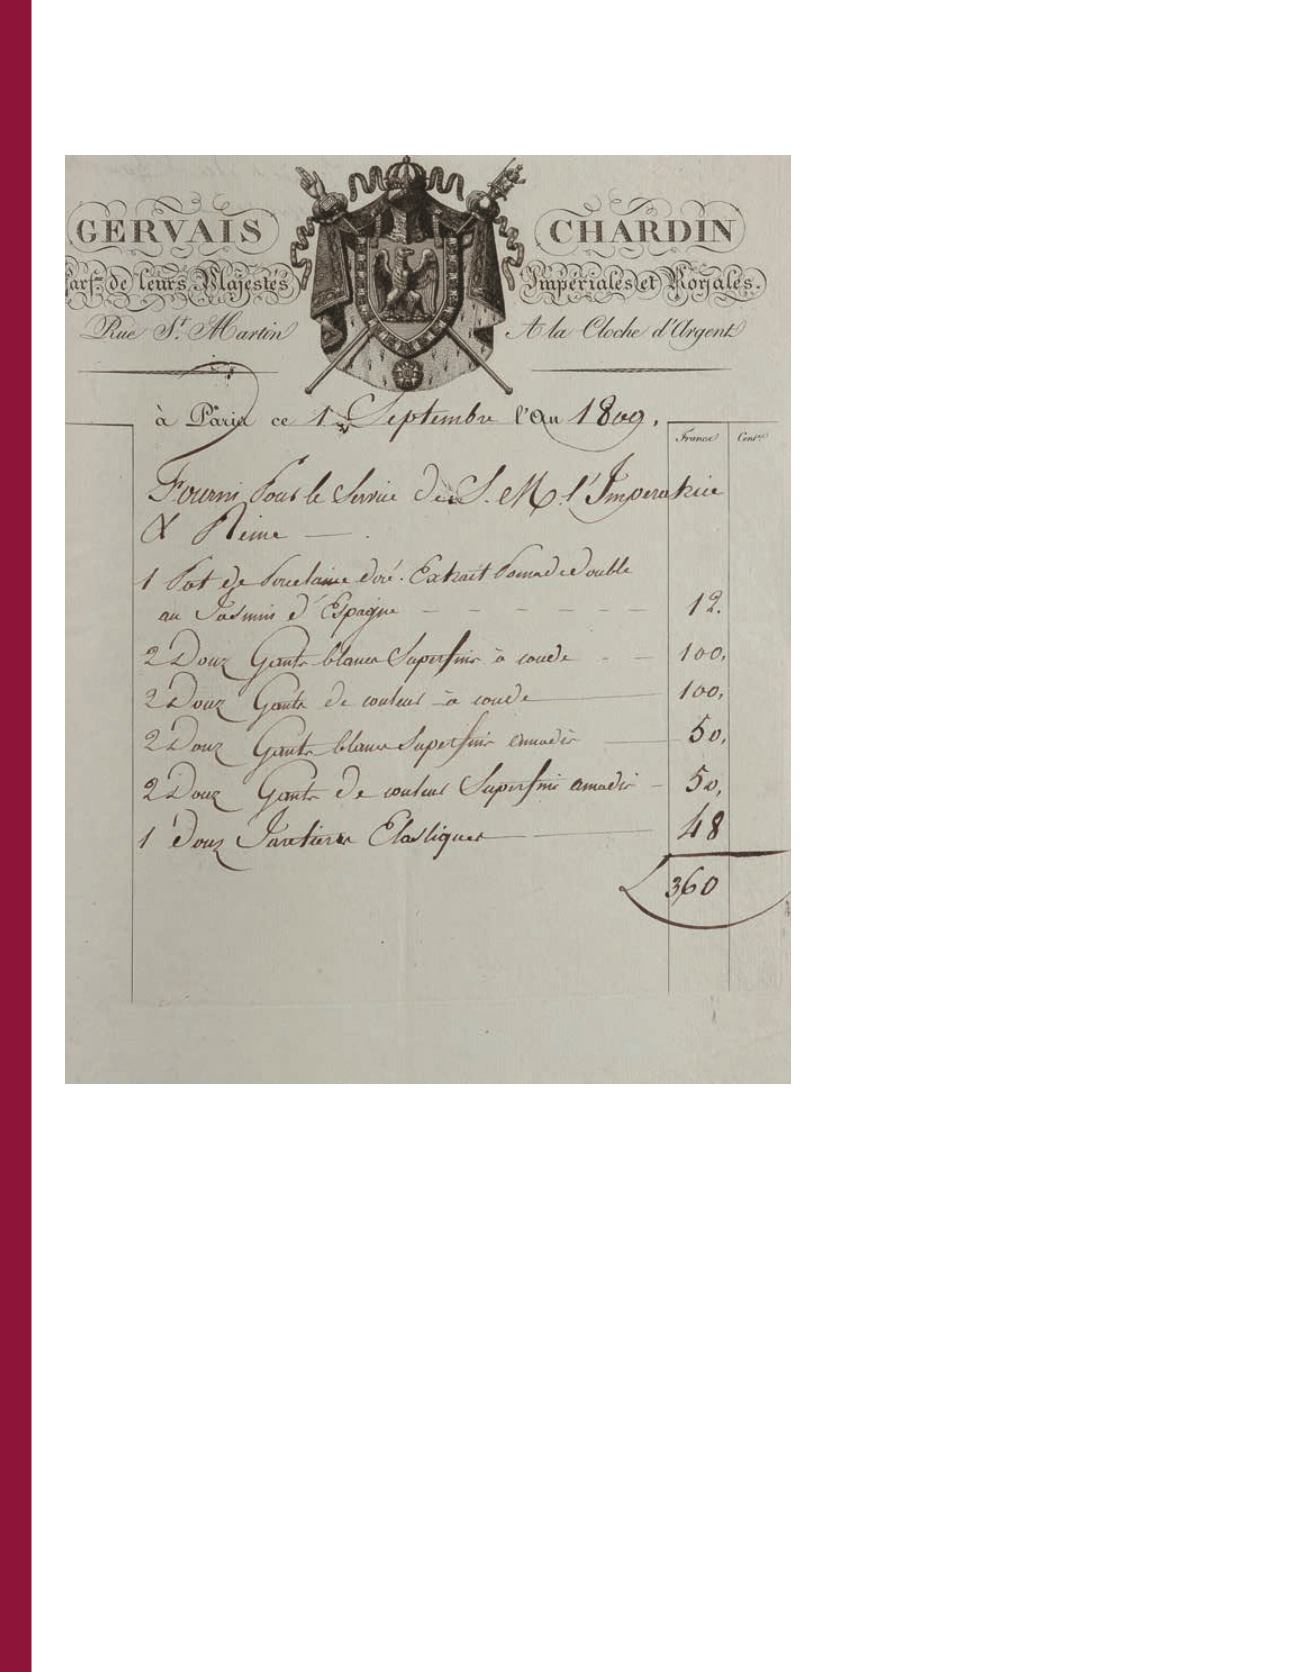 GERVAIS CHARDIN
Parf.r de leurs Majestés Impériales et Royales.
Rue St. Martin A la Cloche d'Argent
à Paris ce 1er Septembre l'An 1809.
Francs Cent.
Fourni Pour le Service de S. M. l'Imperatrice
& Reine — .
1 Pot de Porcelaine doré. Extrait Pomade double
au Jasmin d'Espagne - - - - - - 12.
2 Douz Gants blancs Superfins à coude - - 100,
2 Douz Gants de couleur à coude 100,
2 Douz Gants blancs Superfins amadis 50,
2 Douz Gants de couleur Superfins amadis - 50,
1 Douz Jaretieres Elastiques 48
360